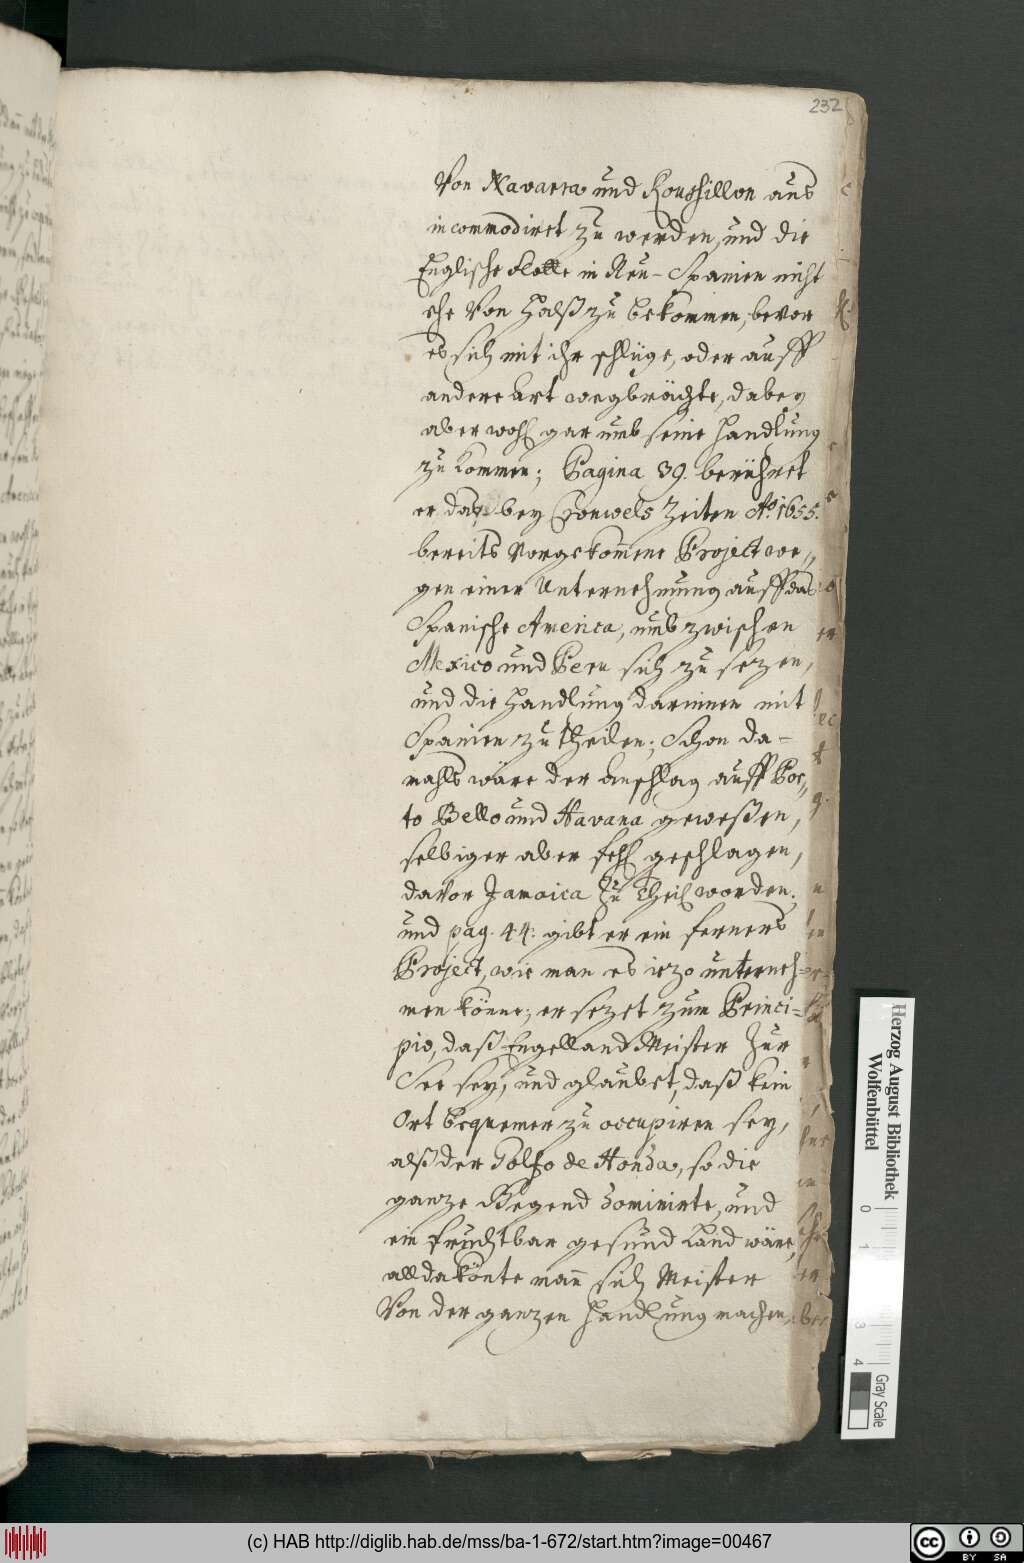 232
Von Navarra und Roussillon aus
incommodiret zu werden, und die
Englische Flotte in Neu-Spanien nicht
ehe Von Halß zu bekommen, bevor
es sich mit ihr schlüge, oder auff
andere Art wegbrächte, dabey
aber wohl gar umb seine Handlung
zu kommen; Pagina 39. berühret
er das bey Cromwels Zeiten Aº. 1655.
bereits Vorgekom̄ene Project we-
gen einer Unternehmung auff das
Spanische America, umb zwischen
Mexico und Peru sich zu sezen,
und die Handlung darinnen mit
Spanien zu theilen; Schon da-
mahls wäre der Anschlag auff Por-
to Bello und Havana geweßen,
selbiger aber fehl geschlagen,
davor Jamaica zu Theil worden;
und pag. 44: gibt er ein ferners
Project, wie man es iezo unterneh-
men könne; er sezet zum Princi-
pio, daß Engelland Meister Zur
See sey, und glaubet, daß kein
Ort bequemer zu occupiren sey,
alß der Golfo de Honda, so die
ganze Gegend dominirte, und
ein fruchtbar gesund Land wäre,
allda könte man̄ sich Meister
Von der ganzen Handlung machen,
Herzog August Bibliothek
Wolfenbüttel
0 1 3 4
Gray Scale
(c) HAB http://diglib.hab.de/mss/ba-1-672/start.htm?image=00467
cc BY SA